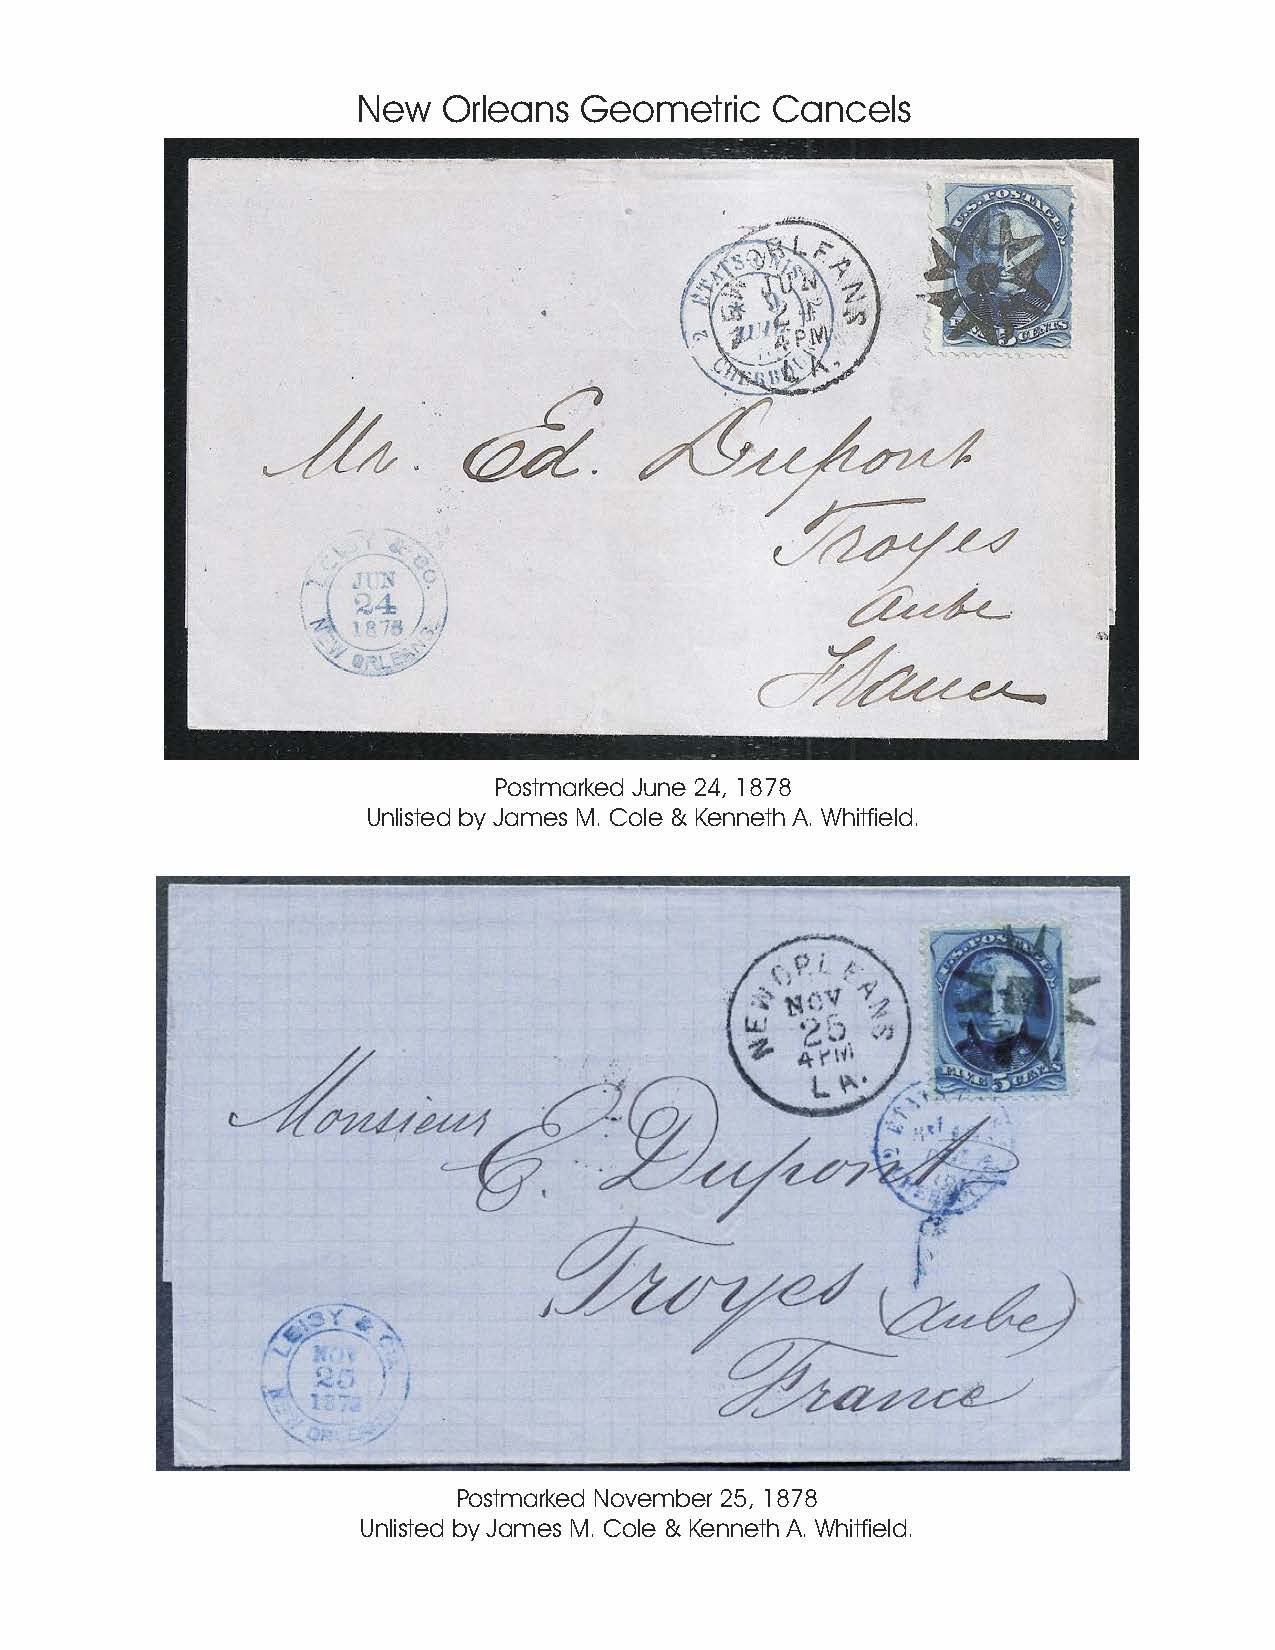 New Orleans Geometric Cancels
U.S. POSTAGE
5 CENTS
ORLEANS
JUN
24
4 PM
LA.
2 ETATS-UNIS 2
CHERB
Mr. Ed. Dupont
Troyes
Aube
France
LEISY & CO.
JUN
24
1878
NEW ORLEANS.
Postmarked June 24, 1878
Unlisted by James M. Cole & Kenneth A. Whitfield.
U.S. POSTAGE
FIVE 5 CENTS
NEW ORLEANS
NOV
25
4 PM
LA.
Monsieur
E. Dupont
Troyes (Aube)
France
LEISY & CO.
NOV
25
1878
NEW ORLEANS
Postmarked November 25, 1878
Unlisted by James M. Cole & Kenneth A. Whitfield.